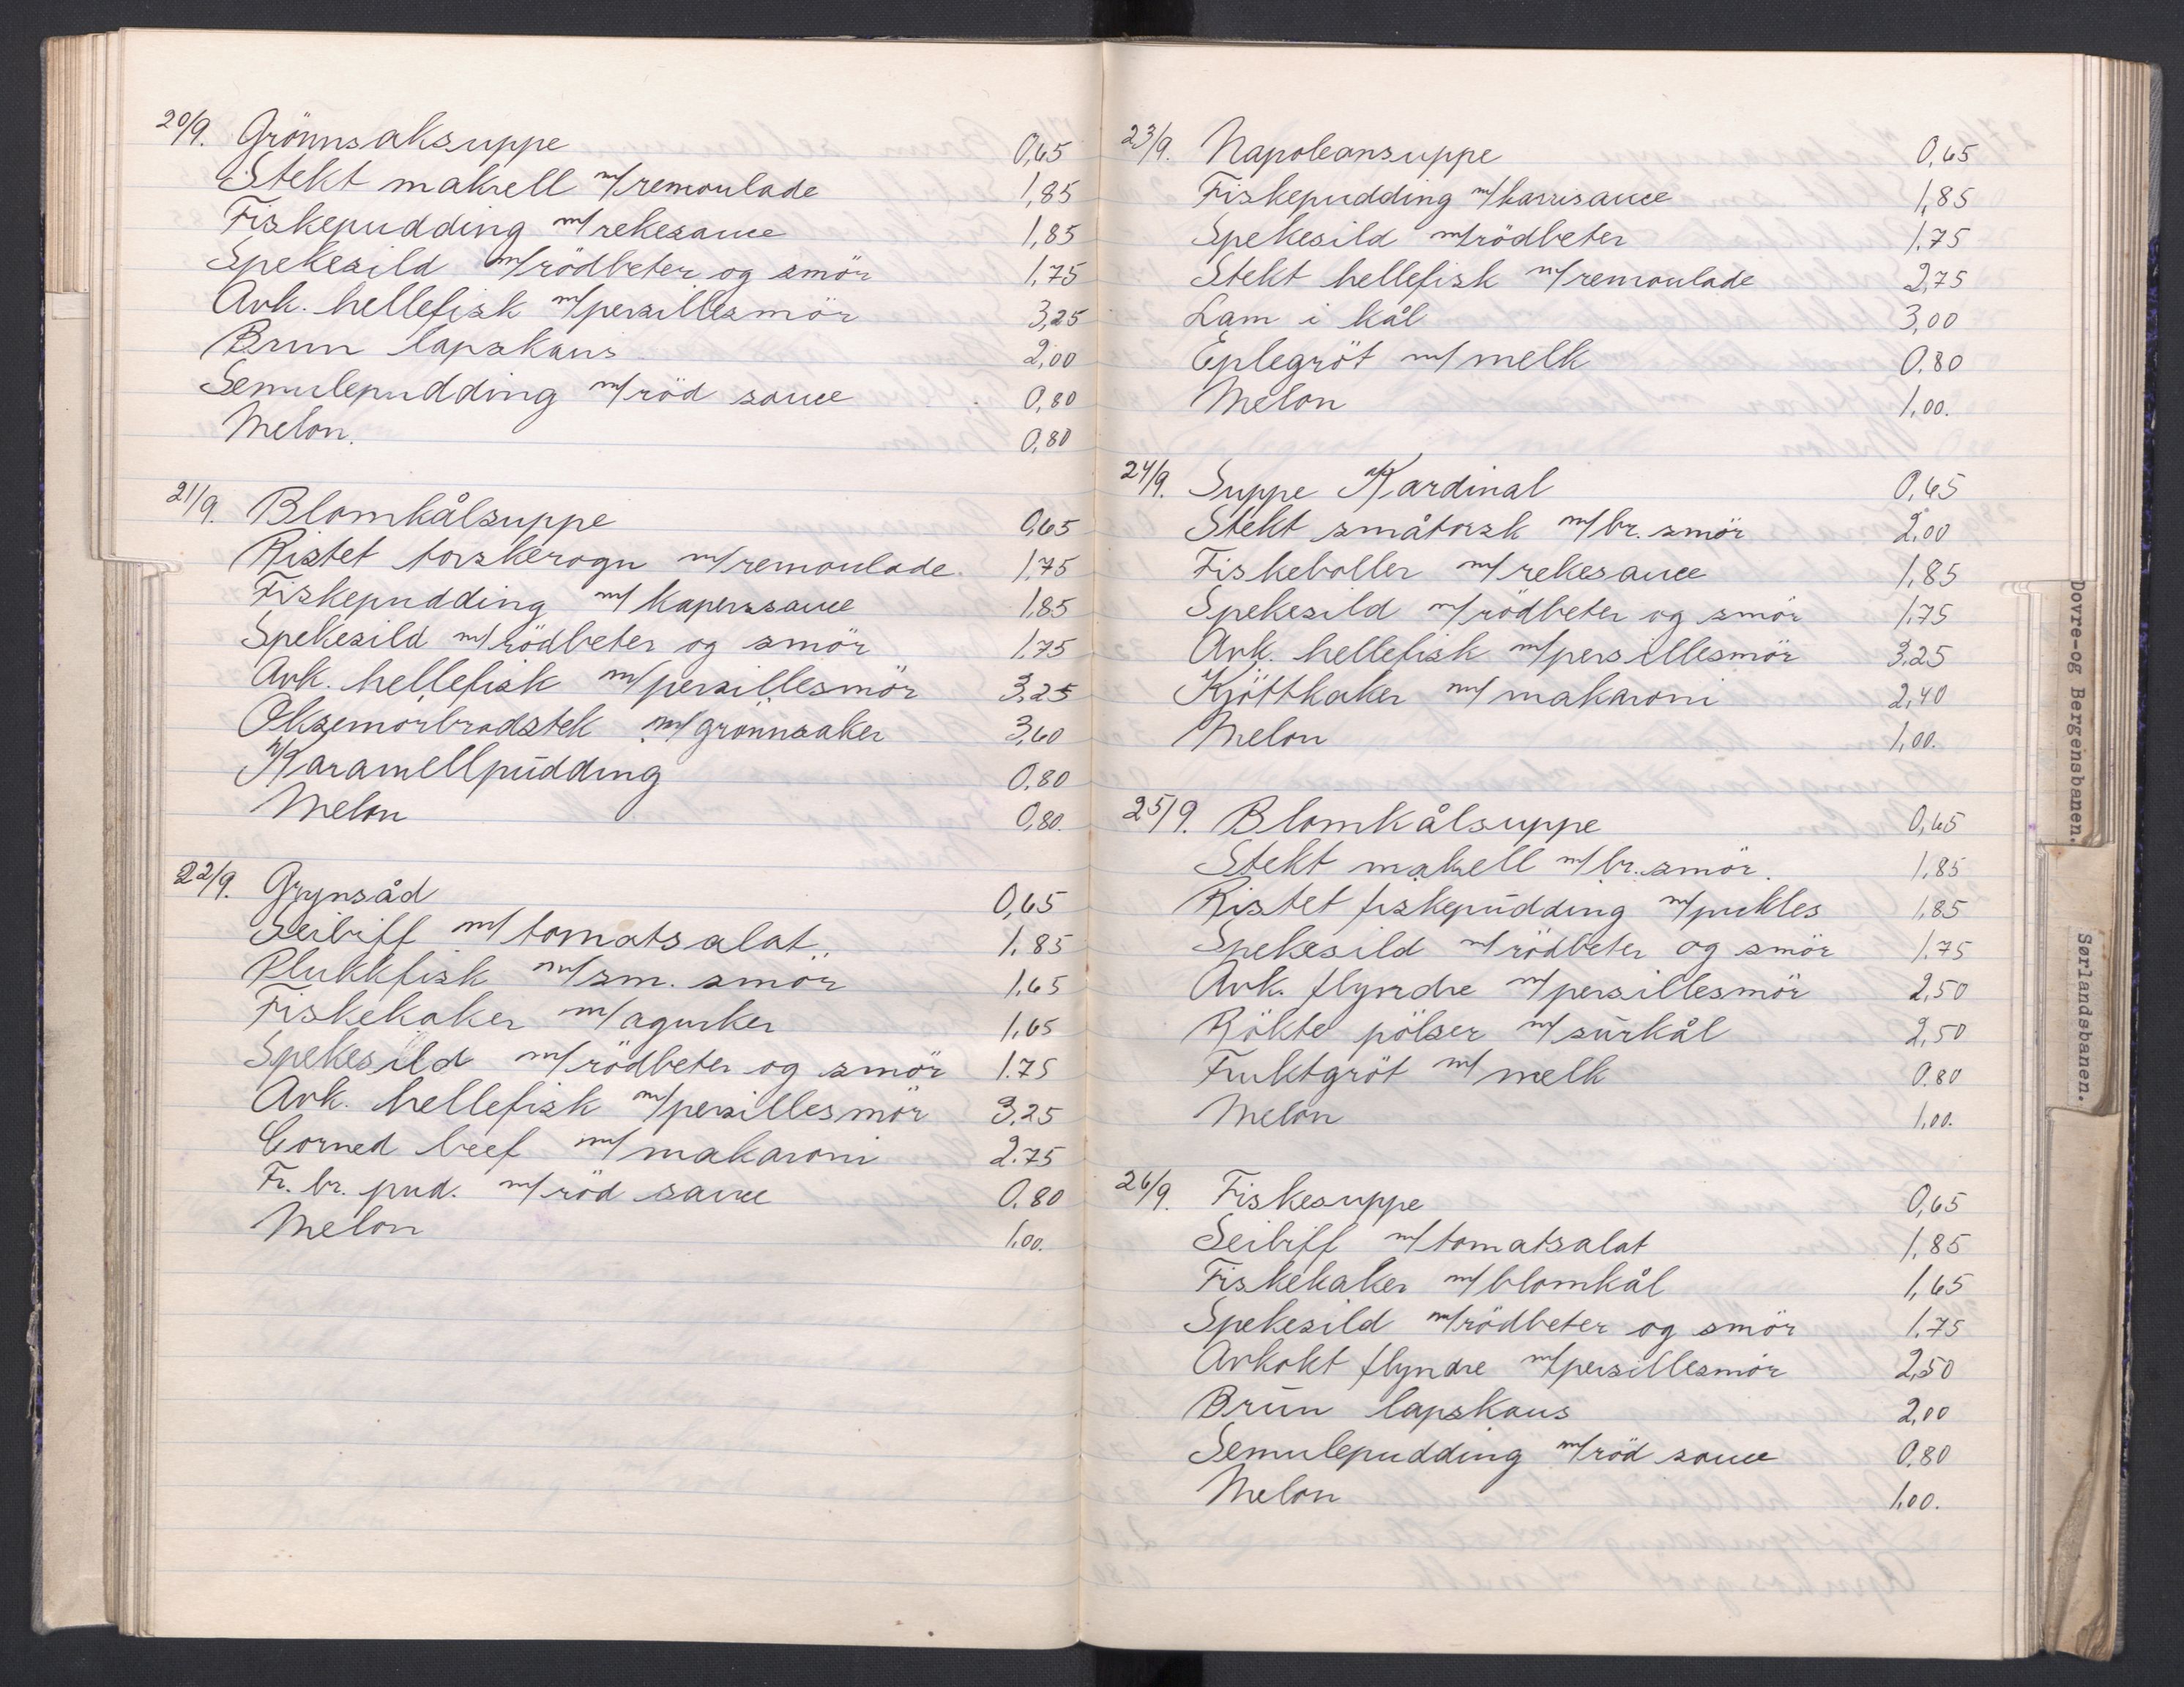 20/9. Grönnsaksuppe 0,65
Stekt makrell m/remoulade 1,85
Fiskepudding m/rekesauce 1,85
Spekesild m/rödbeter og smör 1,75
Avk. hellefisk m/persillesmör 3,25
Brun lapskaus 2,00
Semulepudding m/röd sauce 0,80
Melon. 0,80
21/9. Blomkålsuppe 0,65
Ristet torskerogn m/remoulade. 1,75
Fiskepudding m/kaperssauce 1,85
Spekesild m/rödbeter og smör 1,75
Avk. hellefisk m/persillesmör 3,25
Oksemörbradstek m/grönnsaker 3,60
Karamellpudding 0,80
Melon 0,80.
22/9. Grynsåd 0,65
Seibiff m/tomatsalat 1,85
Plukkfisk m/sm. smör 1,65
Fiskekaker m/agurker 1,65
Spekesild m/rödbeter og smör 1.75
Avk. hellefisk m/persillesmör 3,25
Corned beef m/makaroni 2.75
Fr. br. pud. m/röd sauce 0.80
Melon 1,00.
23/9. Napoleansuppe 0,65
Fiskepudding m/karrisauce 1,85
Spekesild m/rödbeter 1.75
Stekt hellefisk m/remoulade 2,75
Lam i kål 3,00
Eplegröt m/melk 0.80
Melon 1,00.
24/9. Suppe Kardinal 0,65
Stekt småtorsk m/br. smör 2,00
Fiskeboller m/rekesauce 1,85
Spekesild m/rödbeter og smör 1,75
Avk. hellefisk m/persillesmör 3,25
Kjöttkaker m/makaroni 2,40
Melon 1,00.
25/9. Blomkålsuppe 0,65
Stekt makrell m/br. smör. 1,85
Ristet fiskepudding m/pickles 1,85
Spekesild m/rödbeter og smör 1.75
Avk. flyndre m/persillesmör 2,50
Rökte pölser m/surkål 2,50
Fruktgröt m/melk 0.80
Melon 1,00.
26/9. Fiskesuppe 0,65
Seibiff m/tomatsalat 1,85
Fiskekaker m/blomkål 1,65
Spekesild m/rödbeter og smör 1.75
Avkokt flyndre m/persillesmör 2,50
Brun lapskaus 2,00
Semulepudding m/röd sauce 0.80
Melon 1,00.
Dovre-og Bergensbanen.
Sørlandsbanen.